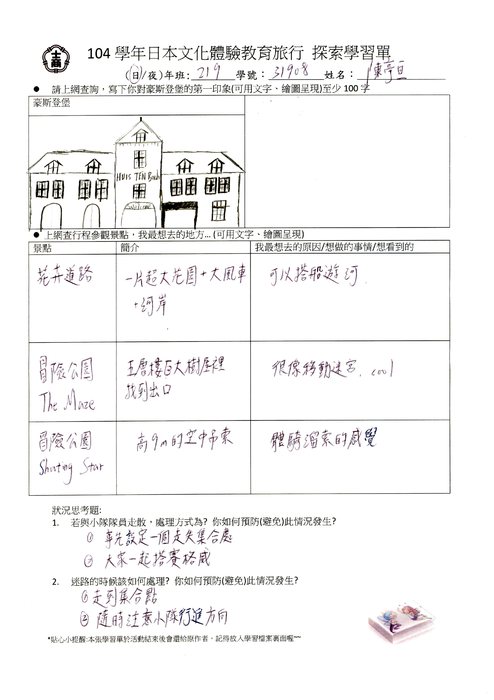 104 學年日本文化體驗教育旅行 探索學習單
(日/夜)年班: 219 學號: 31908 姓名: 陳亭亘
● 請上網查詢，寫下你對豪斯登堡的第一印象(可用文字、繪圖呈現)至少 100 字
豪斯登堡
HUIS TEN Bosch
● 上網查行程參觀景點，我最想去的地方…(可用文字、繪圖呈現)
景點 簡介 我最想去的原因/想做的事情/想看到的
花卉道路 一片超大花園+大風車 可以搭船遊河.
+河岸
冒險公園 五層樓巨大樹屋裡 很像移動迷宮. cool
The Maze 找到出口
冒險公園 高9m的空中吊索 體驗溜索的感覺
Shooting Star
狀況思考題:
1. 若與小隊隊員走散，處理方式為? 你如何預防(避免)此情況發生?
① 事先設定一個走失集合處
② 大家一起搭賽格威
2. 迷路的時候該如何處理? 你如何預防(避免)此情況發生?
① 走到集合點
② 隨時注意小隊行進方向
*貼心小提醒:本張學習單於活動結束後會還給原作者，記得放入學習檔案裏面喔~~